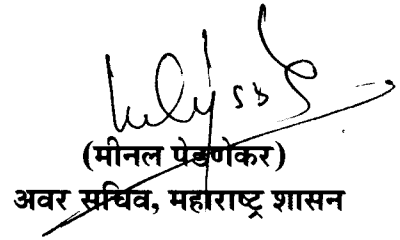 (मीनल पेडणेकर)
अवर सचिव, महाराष्ट्र शासन